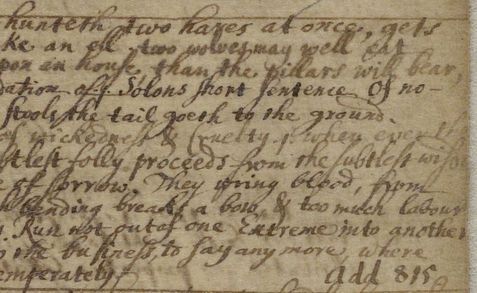 hunteth two hares at once, gets
ke an eil two wolves may well eat
pon an house, than the pillars will bear,
dation of yͤ Solons short sentence Of no-
stools the tail goeth to the ground.
of wickedness & Cruelty, when ever th
tlest folly proceeds from the subtlest wisdo
e of sorrow. They wring blood, from
bending breaks a bow, & too much labour
Run not out of one Extreme into another
o the business, to say any more, where
emperately.
add 815